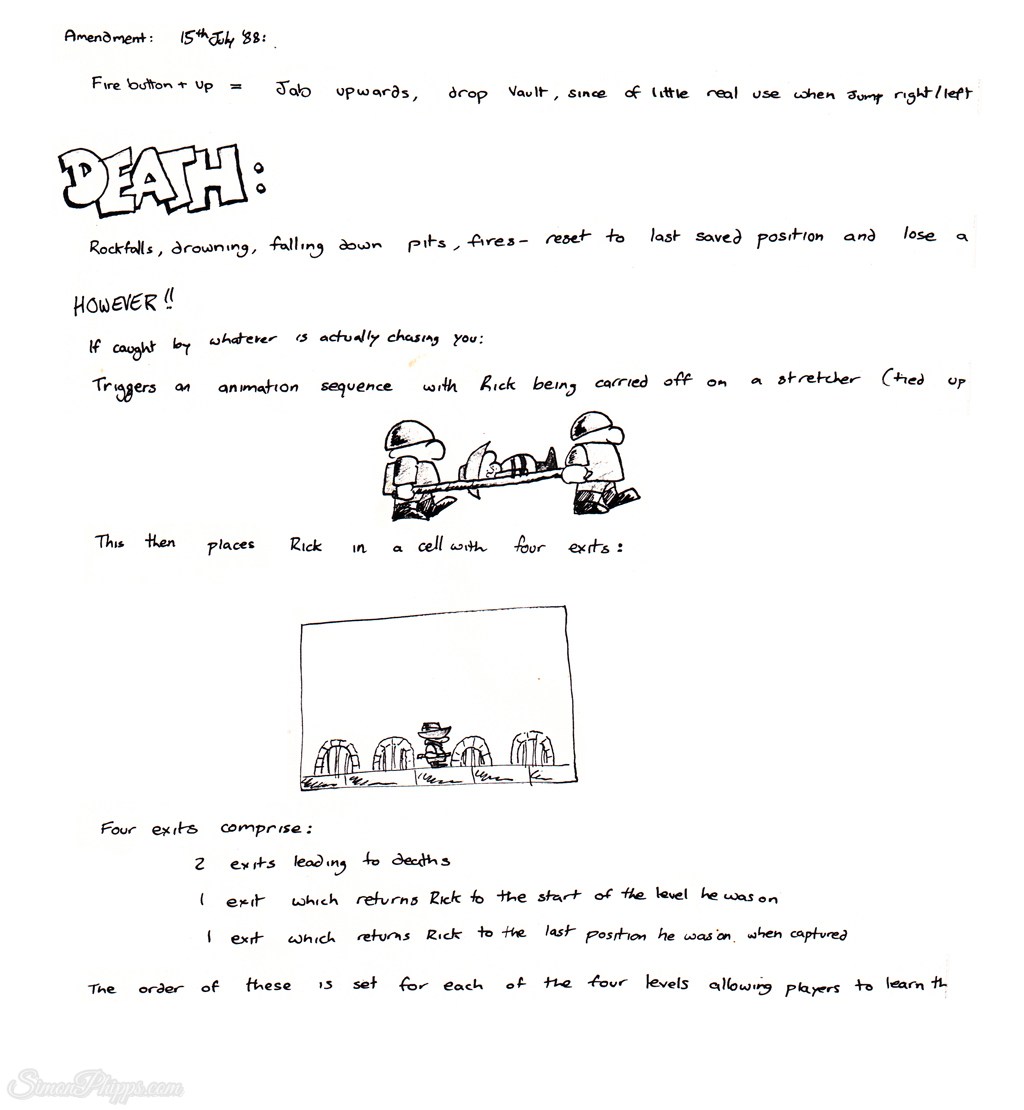 Amendment: 15th July '88:
Fire button + Up = Jab upwards, drop Vault, since of little real use when Jump right/left
DEATH:
Rockfalls, drowning, falling down pits, fires- reset to last saved position and lose a
HOWEVER!!
If caught by whatever is actually chasing you:
Triggers an animation sequence with Rick being carried off on a stretcher (tied up
This then places Rick in a cell with four exits:
Four exits comprise:
2 exits leading to deaths
1 exit which returns Rick to the start of the level he was on
1 exit which returns Rick to the last position he was on. when captured
The order of these is set for each of the four levels allowing players to learn th
SimonPhipps.com